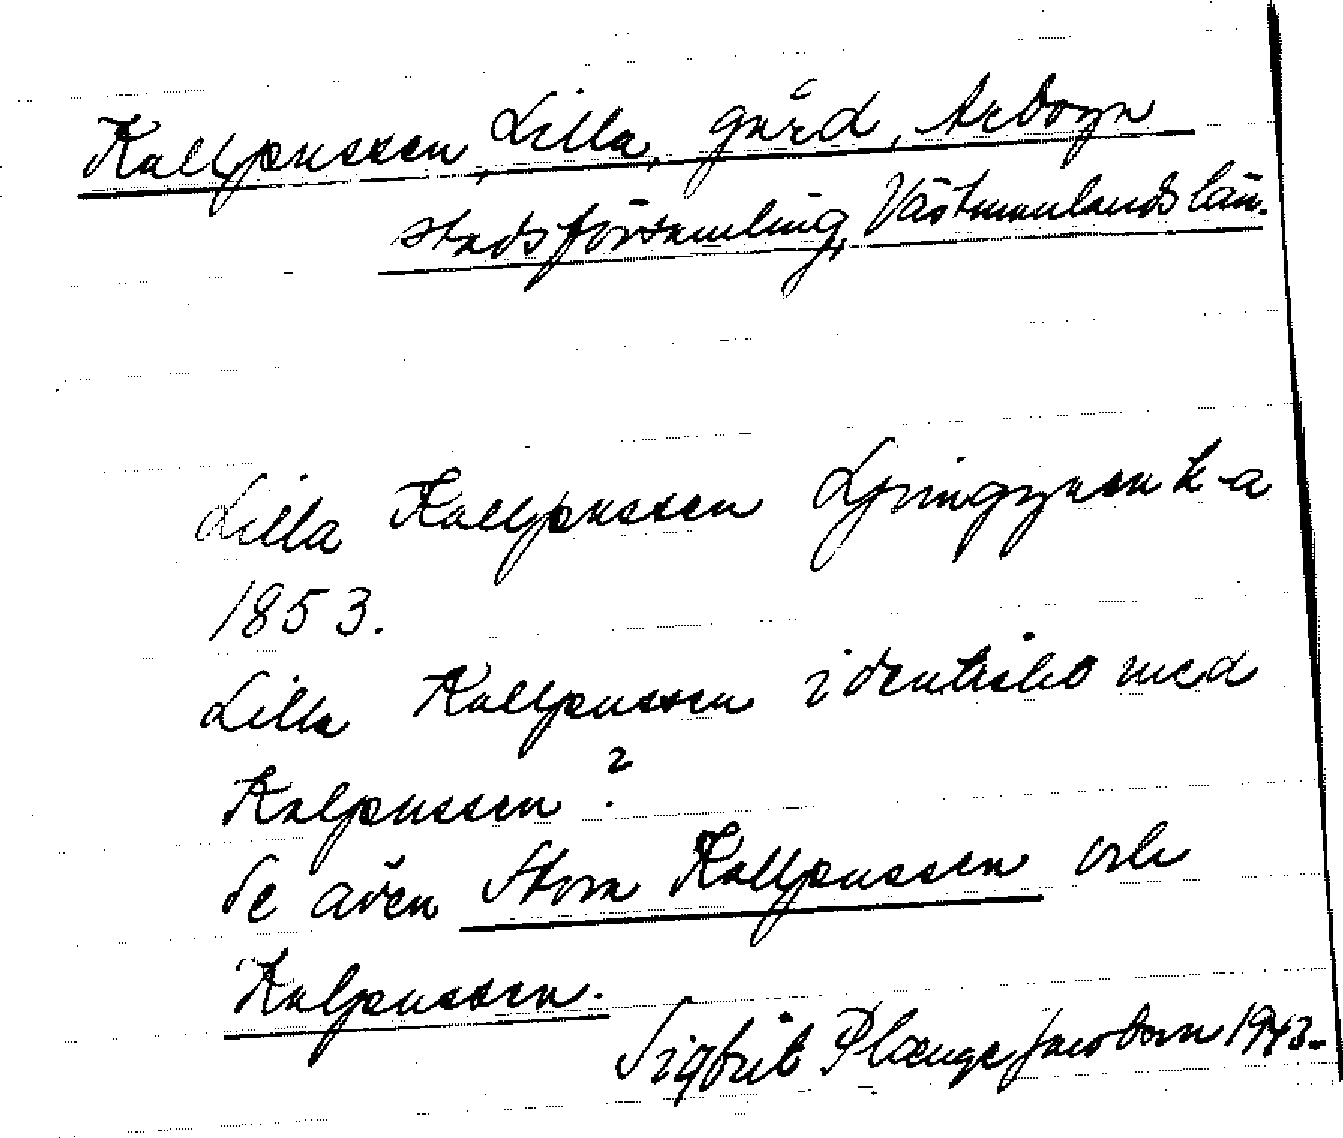 Kallpussen, Lilla, gård, Arboga
stadsförsamling, Västmanlands län.
Lilla Kallpussen Ljunggren k-a
1853.
Lilla Kallpussen identisk med
Kalpussen?
Se även Stora Kallpussen och
Kalpussen.
Sigfrid Plænge Jacobson 1943.